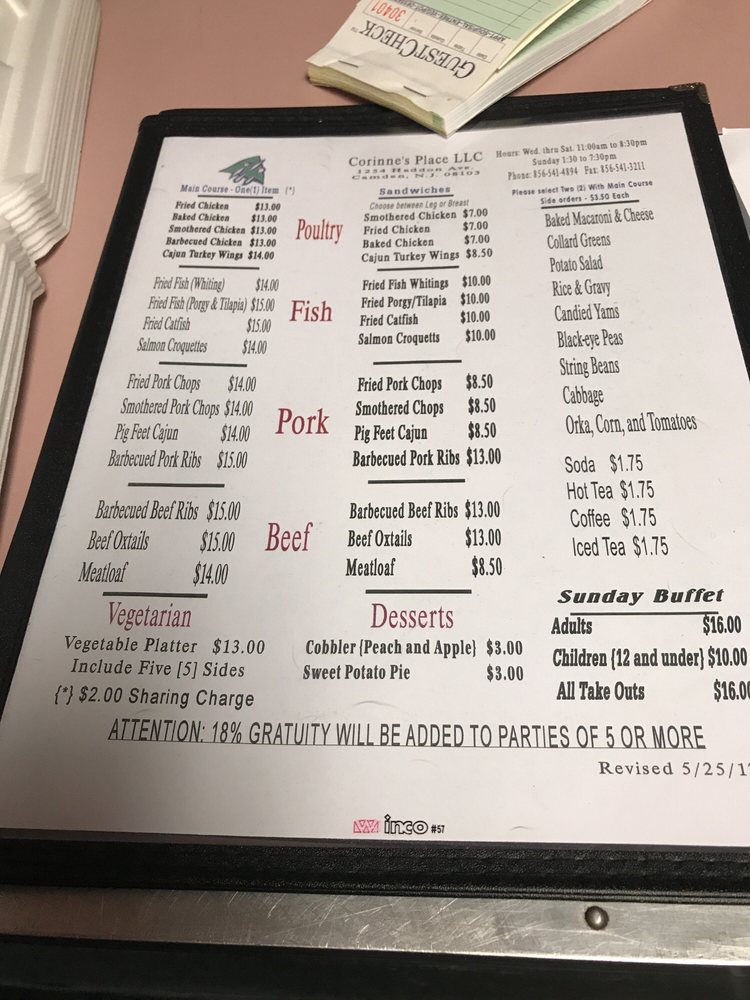 GUESTCHECK™
30401
Date
Table
Guests
Server
Corinne's Place LLC
1254 Haddon Ave.
Camden, N.J. 08103
Hours: Wed. thru Sat. 11:00am to 8:30pm
Sunday 1:30 to 7:30pm
Phone: 856-541-4894 Fax: 856-541-3211
Main Course - One(1) Item (*)
Fried Chicken $13.00
Baked Chicken $13.00
Smothered Chicken $13.00
Barbecued Chicken $13.00
Cajun Turkey Wings $14.00
Poultry
Sandwiches
Choose between Leg or Breast
Smothered Chicken $7.00
Fried Chicken $7.00
Baked Chicken $7.00
Cajun Turkey Wings $8.50
Fried Fish (Whiting) $14.00
Fried Fish (Porgy & Tilapia) $15.00
Fried Catfish $15.00
Salmon Croquettes $14.00
Fish
Fried Fish Whitings $10.00
Fried Porgy/Tilapia $10.00
Fried Catfish $10.00
Salmon Croquetts $10.00
Fried Pork Chops $14.00
Smothered Pork Chops $14.00
Pig Feet Cajun $14.00
Barbecued Pork Ribs $15.00
Pork
Fried Pork Chops $8.50
Smothered Chops $8.50
Pig Feet Cajun $8.50
Barbecued Pork Ribs $13.00
Barbecued Beef Ribs $15.00
Beef Oxtails $15.00
Meatloaf $14.00
Beef
Barbecued Beef Ribs $13.00
Beef Oxtails $13.00
Meatloaf $8.50
Vegetarian
Vegetable Platter $13.00
Include Five [5] Sides
{*} $2.00 Sharing Charge
Desserts
Cobbler {Peach and Apple} $3.00
Sweet Potato Pie $3.00
Please select Two (2) With Main Course
Side orders - $3.50 Each
Baked Macaroni & Cheese
Collard Greens
Potato Salad
Rice & Gravy
Candied Yams
Black-eye Peas
String Beans
Cabbage
Orka, Corn, and Tomatoes
Soda $1.75
Hot Tea $1.75
Coffee $1.75
Iced Tea $1.75
Sunday Buffet
Adults $16.00
Children {12 and under} $10.00
All Take Outs $16.00
ATTENTION: 18% GRATUITY WILL BE ADDED TO PARTIES OF 5 OR MORE
Revised 5/25/1
Winco #57